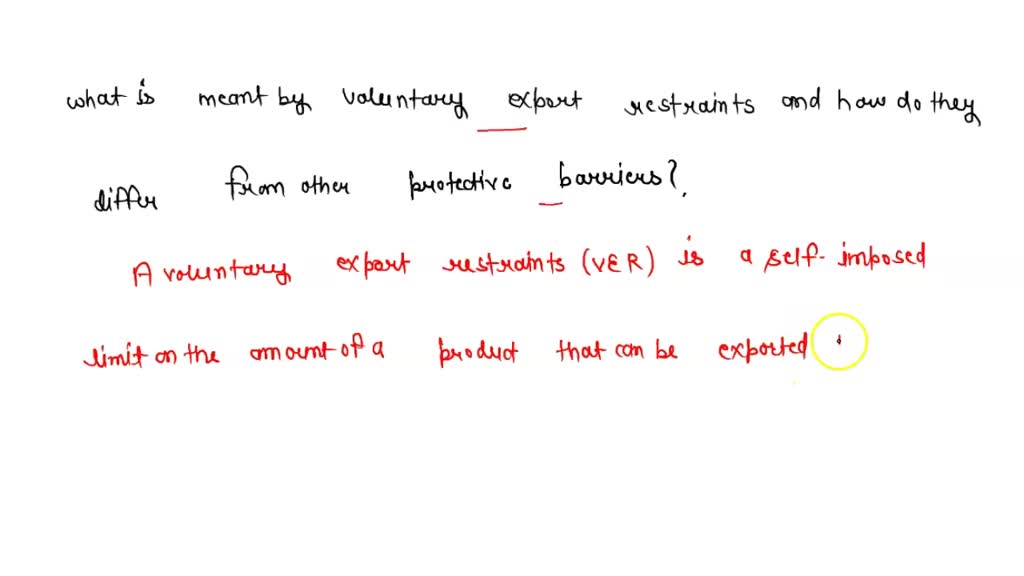 what is meant by voluntary export restraints and how do they
differ from other protective barriers?
A voluntary export restraints (VER) is a self-imposed
limit on the amount of a product that can be exported